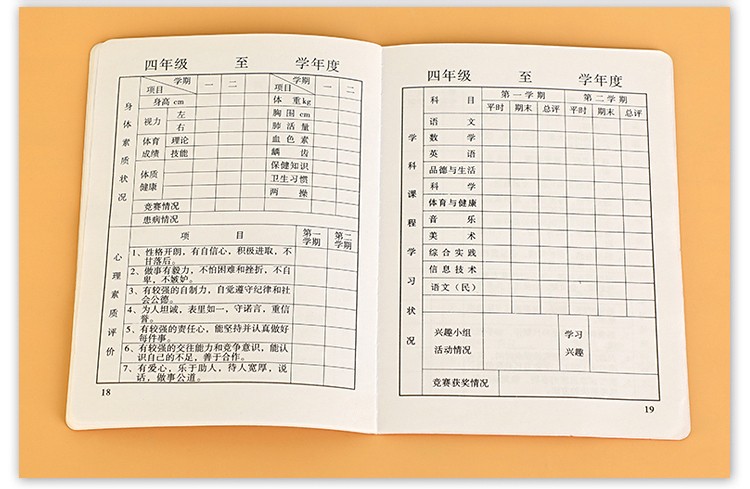 四年级 至 学年度
身体素质状况
学期
项目
一 二
学期
项目
一 二
身高cm 体重kg
视力 左 胸围cm
右 肺活量
体育成绩 理论 血色素
技能 龋齿
体质健康 保健知识
卫生习惯
两操
竞赛情况
患病情况
心理素质评价
项目 第一学期 第二学期
1、性格开朗，有自信心，积极进取，不
甘落后。
2、做事有毅力，不怕困难和挫折，不自
卑，不嫉妒。
3、有较强的自制力，自觉遵守纪律和社
会公德。
4、为人坦诚，表里如一，守诺言，重信
誉。
5、有较强的责任心，能坚持并认真做好
每件事。
6、有较强的交往能力和竞争意识，能认
识自己的不足，善于合作。
7、有爱心，乐于助人，待人宽厚，说
话，做事公道。
18
四年级 至 学年度
学科课程学习状况
科目 第一学期 第二学期
平时 期末 总评 平时 期末 总评
语文
数学
英语
品德与生活
科学
体育与健康
音乐
美术
综合实践
信息技术
语文（民）
兴趣小组 学习
活动情况 兴趣
竞赛获奖情况
19